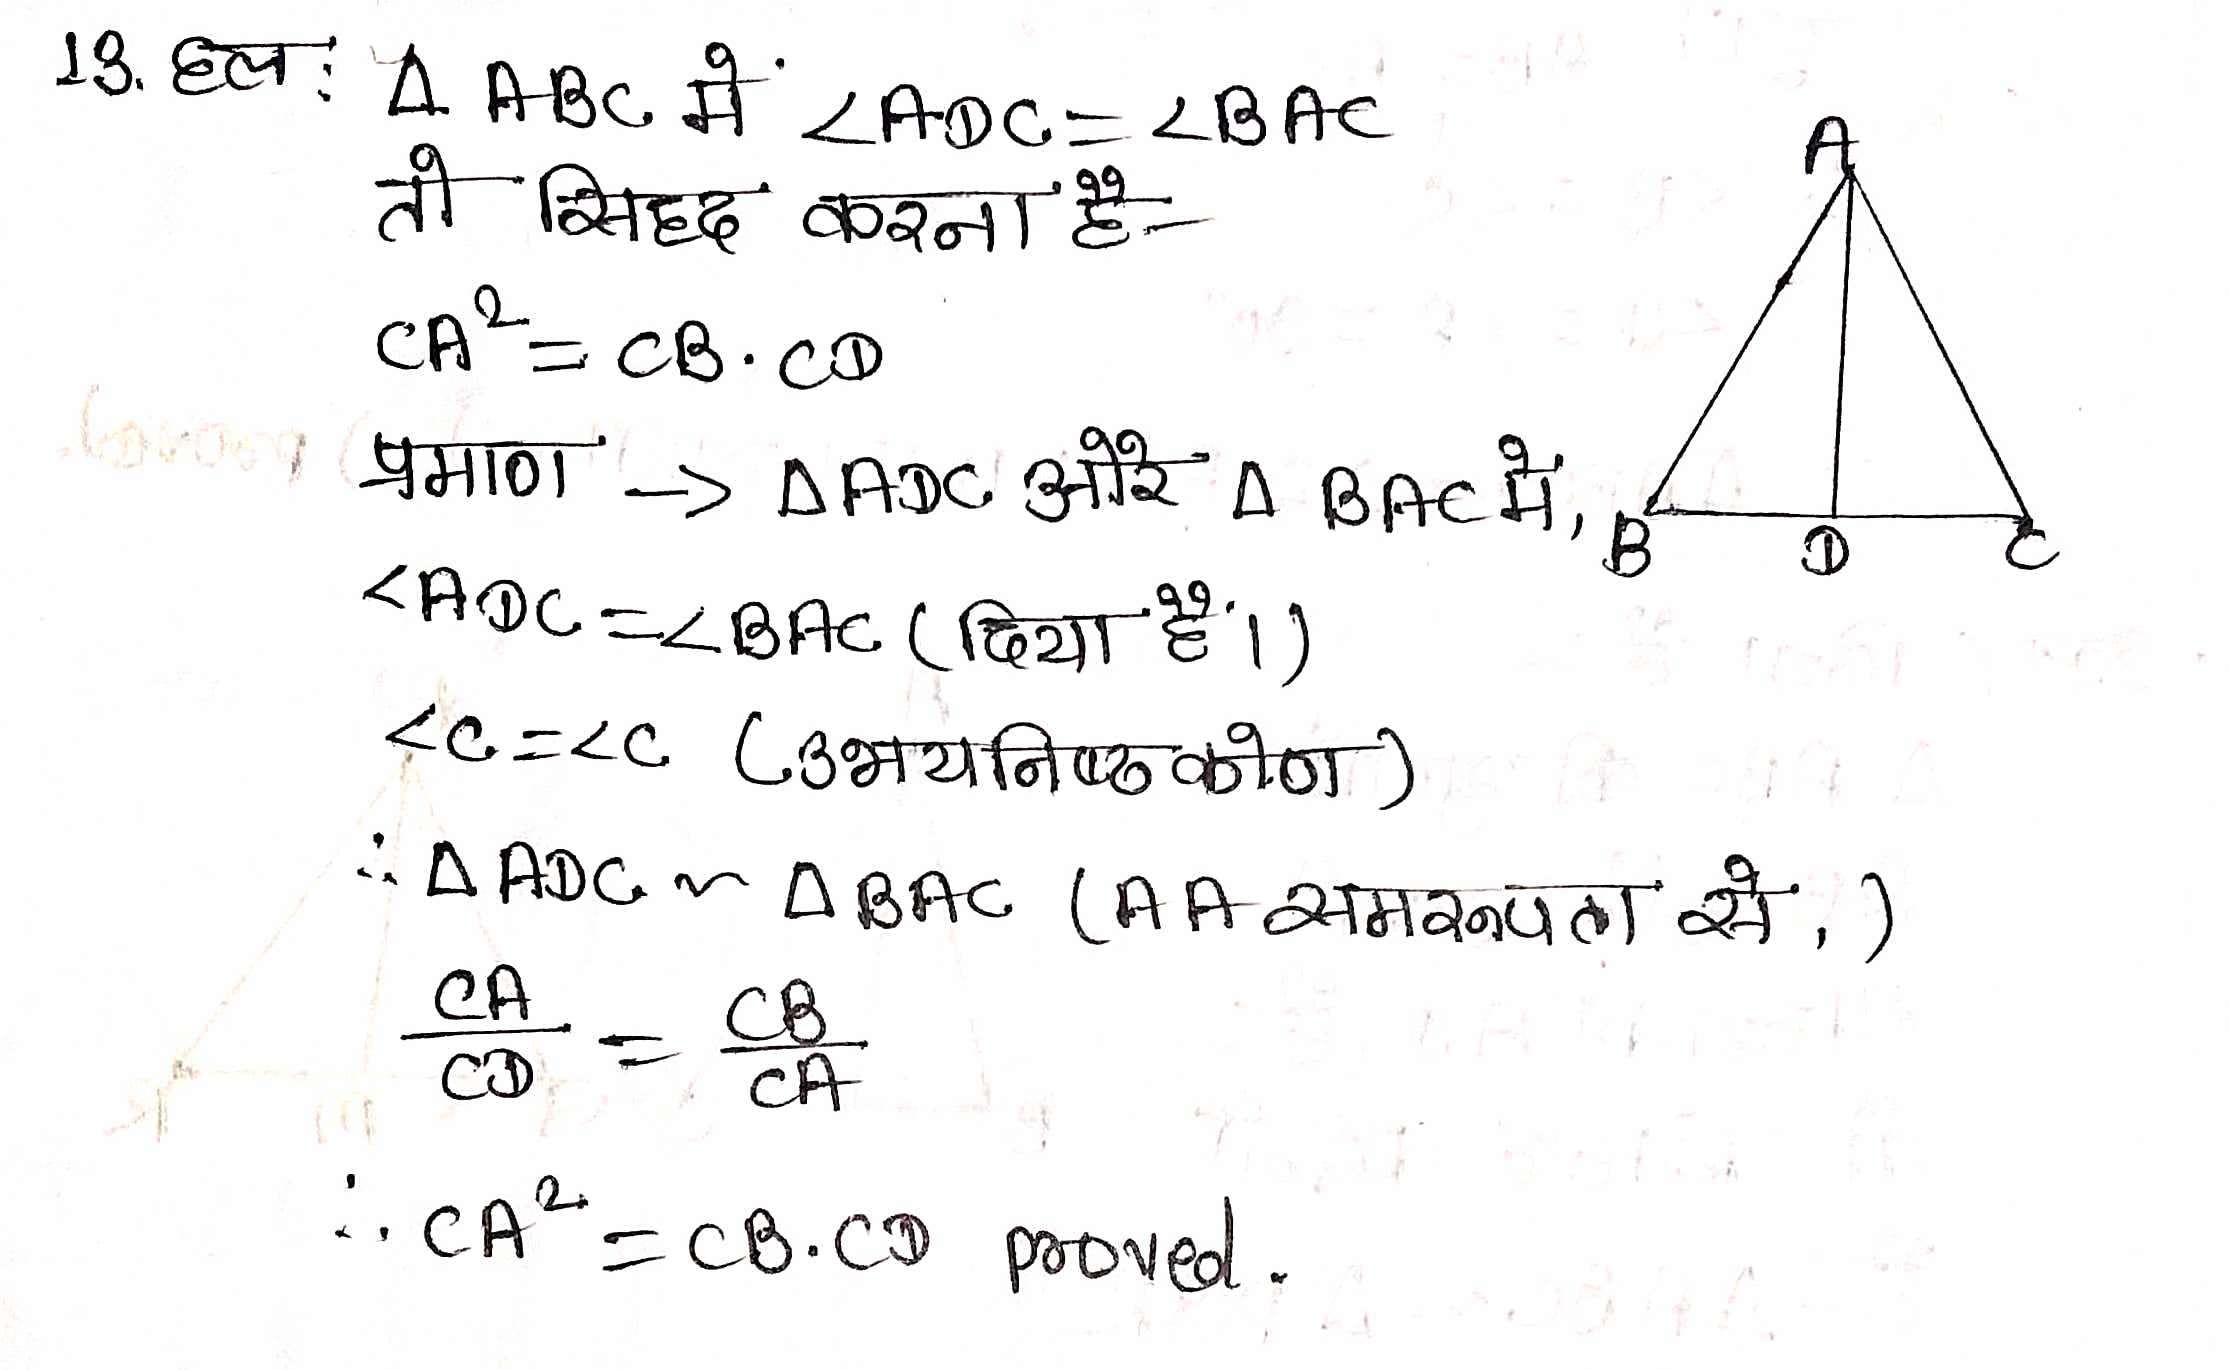 13. हल: Δ ABC में ∠ADC = ∠BAC
तो सिद्ध करना है-
CA² = CB · CD
प्रमाण -> Δ ADC और Δ BAC में,
∠ADC = ∠BAC (दिया है।)
∠C = ∠C (उभयनिष्ठ कोण)
∴ Δ ADC ~ Δ BAC (AA समरूपता से,)
CA/CD = CB/CA
∴ CA² = CB.CD proved.
A
B D C